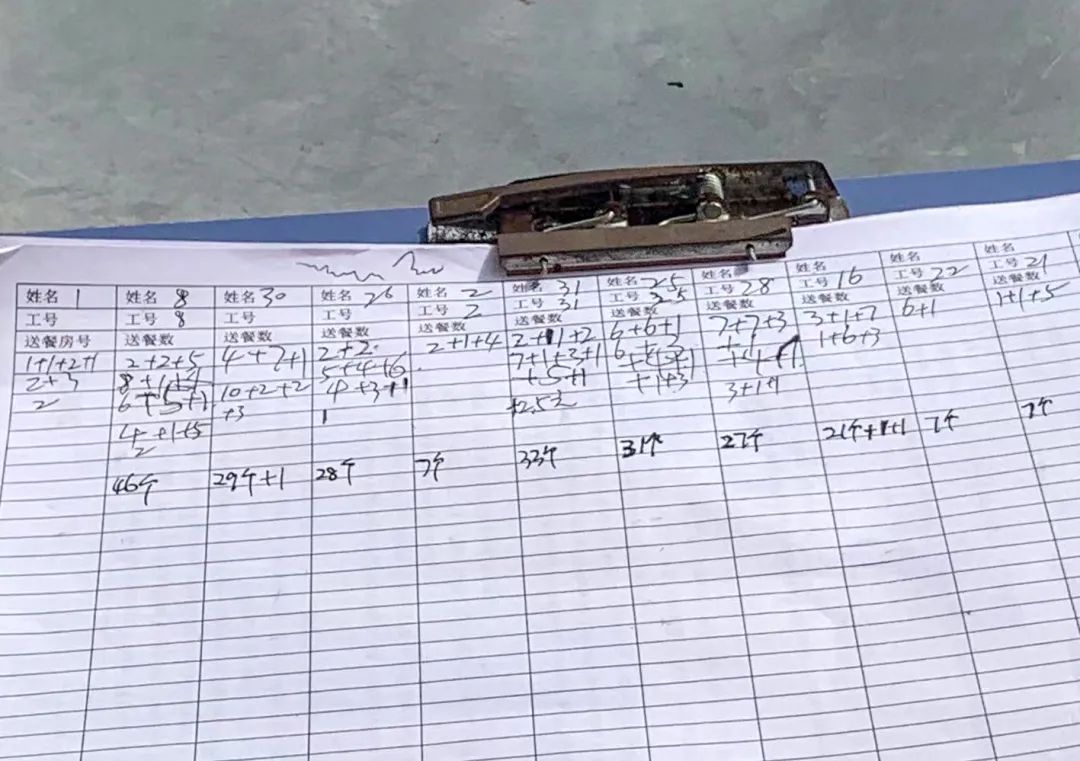 姓名 1 姓名 8 姓名 30 姓名 26 姓名 2 姓名 31 姓名 25 姓名 28 姓名 16 姓名 姓名
工号 工号 8 工号 工号 工号 2 工号 31 工号 25 工号 工号 工号 22 工号 21
送餐房号 送餐数 送餐数 送餐数 送餐数 送餐数 送餐数 送餐数 送餐数 送餐数 送餐数
1+1+2+1 2+2+5 4+7+1 2+2 2+1+4 2+1+2 6+6+1 7+7+3 3+1+7 6+1 1+1+5
2+3 5+4+6 7+1+3+1 1+6+3
2 6+5+1 10+2+2 4+3+1 +5+1 +1+3 3+1+1
4+1+5 +3 1
2
46个 29个+1 28个 7个 33个 31个 27个 21个+1+1 7个 7个